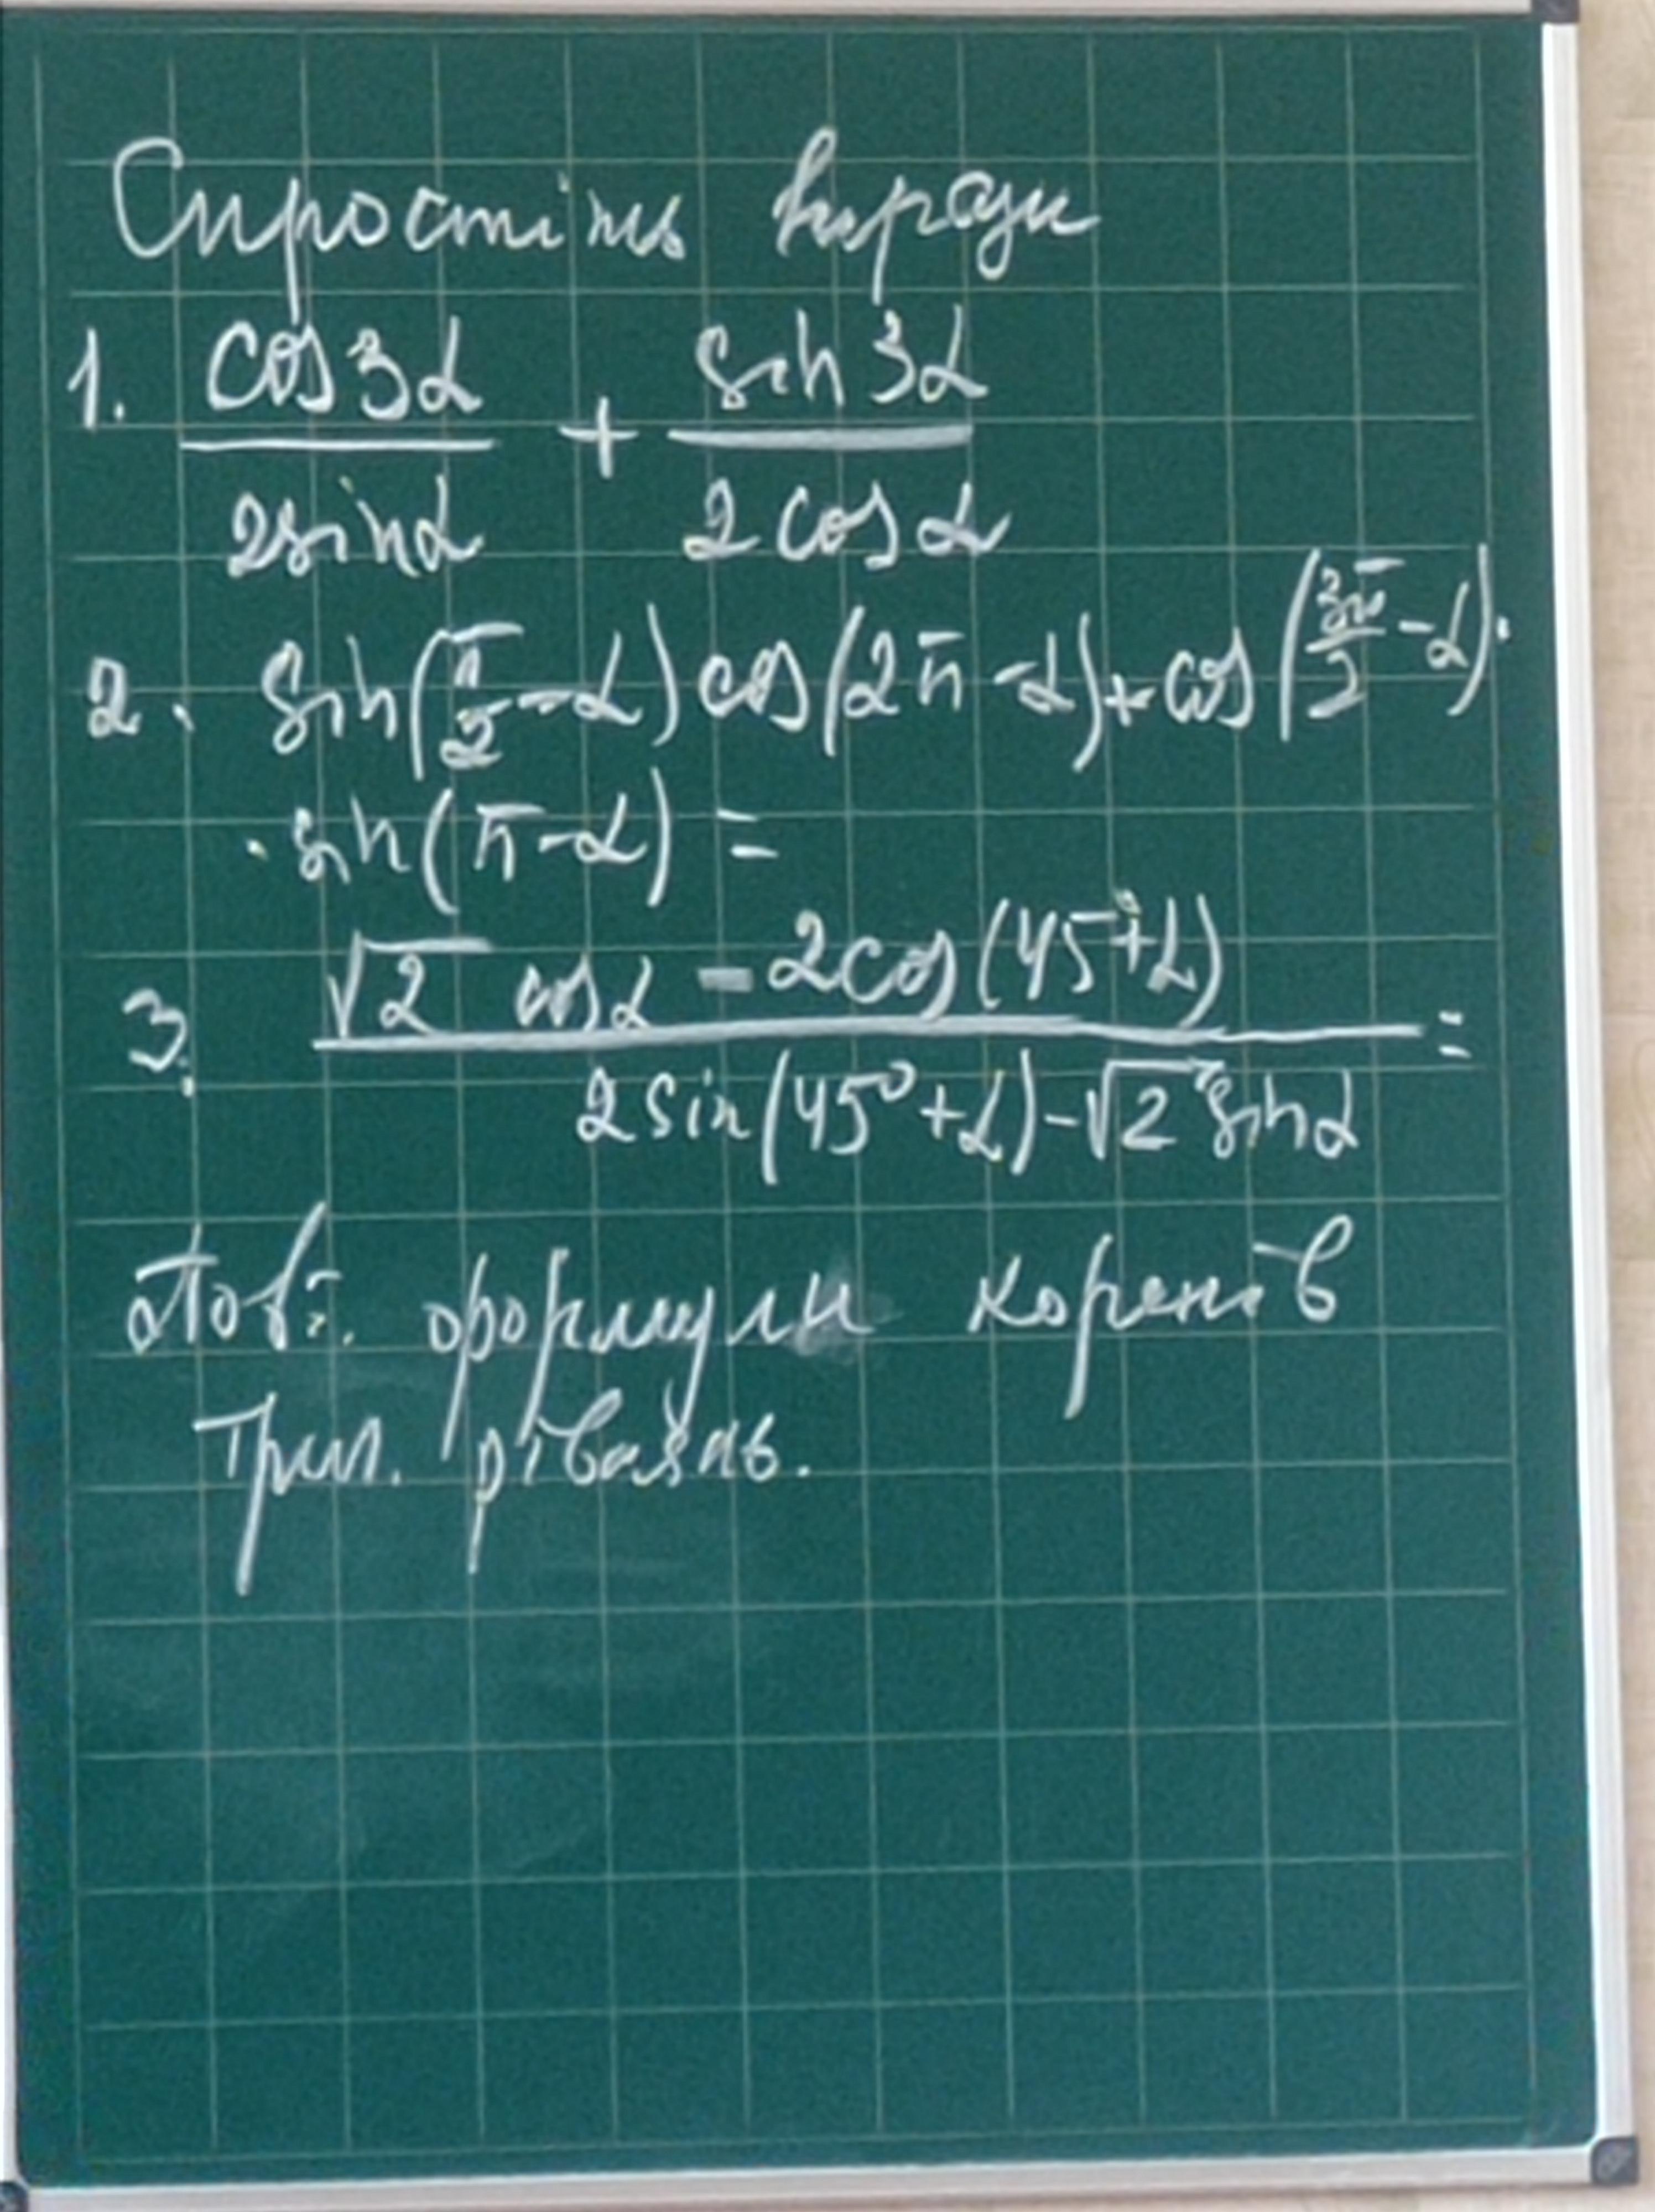 Спростіть вирази
1. cos3α/2sinα + sin3α/2cosα
2. sin(π/2-α)cos(2π-α)+cos(3π/2-α)·
·sin(π-α)=
3. √2 cosα - 2cos(45°+α)/2sin(45°+α)-√2 sinα =
Повт. формули коренів
триг. рівнянь.